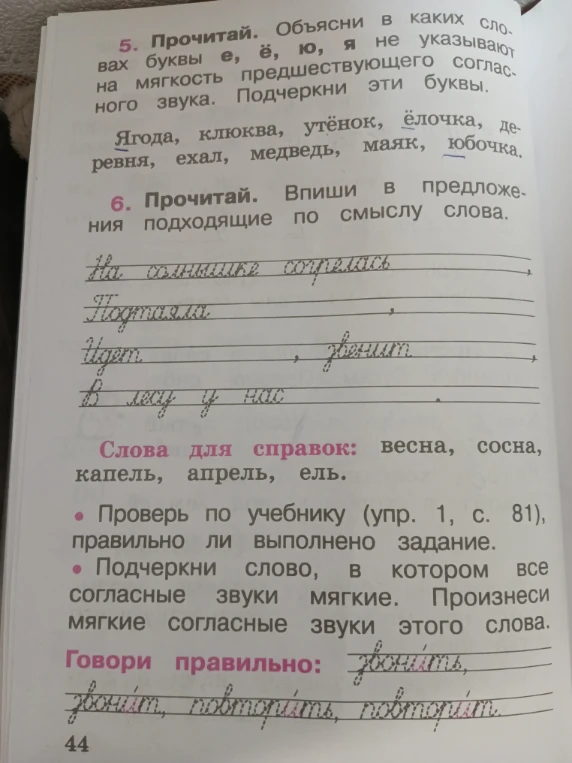 5. Прочитай. Объясни в каких сло-
вах буквы е, ё, ю, я не указывают
на мягкость предшествующего соглас-
ного звука. Подчеркни эти буквы.
Ягода, клюква, утёнок, ёлочка, де-
ревня, ехал, медведь, маяк, юбочка.
6. Прочитай. Впиши в предложе-
ния подходящие по смыслу слова.
На солнышке согрелась ,
Подтаяла ,
Идет , звенит ,
В лесу у нас .
Слова для справок: весна, сосна,
капель, апрель, ель.
• Проверь по учебнику (упр. 1, с. 81),
правильно ли выполнено задание.
• Подчеркни слово, в котором все
согласные звуки мягкие. Произнеси
мягкие согласные звуки этого слова.
Говори правильно: звони́ть,
звони́т, повтори́ть, повтори́т.
44